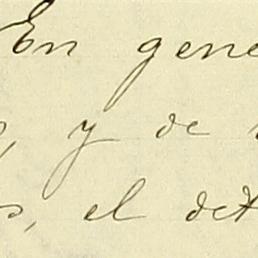 En gene
, y de
s, el det